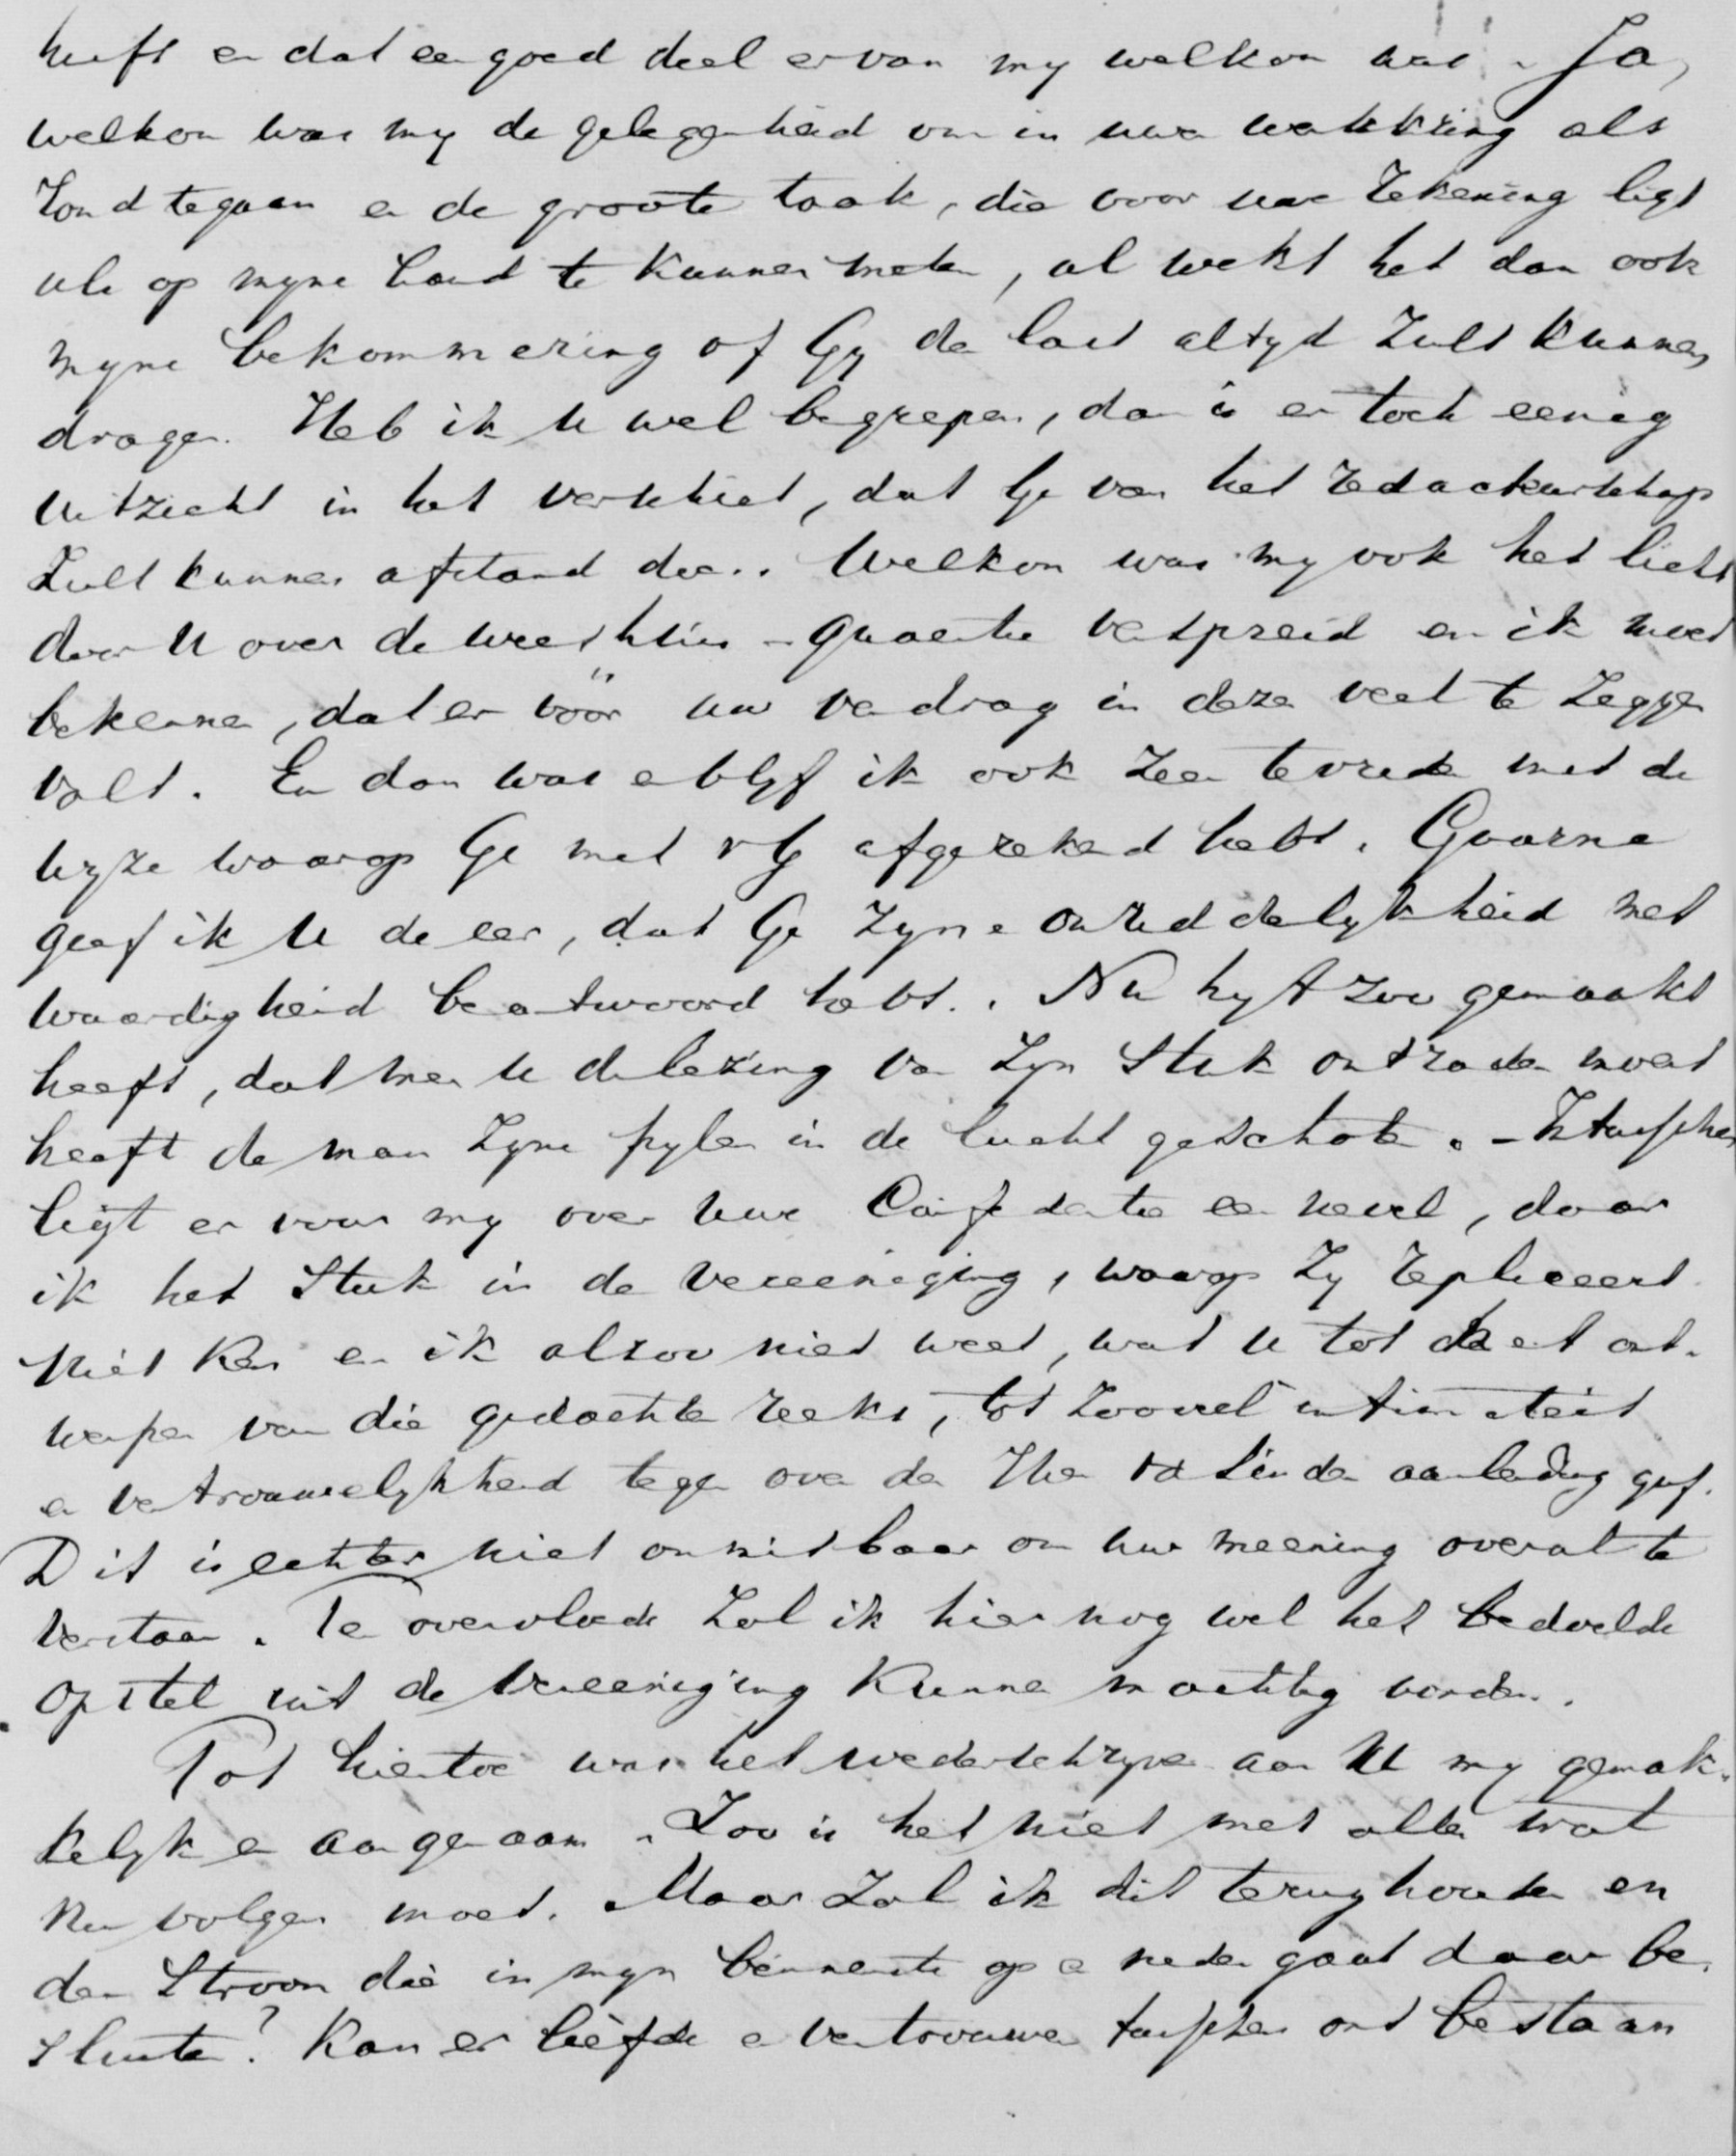 heeft en dat een goed deel ervan my welkom was. Ja,
welkom was my de gelegenheid om in uwen werkkring als
rond te gaan en de groote taak, die voor uwe rekening ligt
als op myne hand te kunnen meten, al wekt het dan ook
myne bekommering of Gy de last altyd zult kunnen
dragen. Heb ik U wel begrepen, dan is er toch eenig
uitzicht in het verschiet, dat Ge van het redacteurschap
zult kunnen afstand doen. Welkom was my ook het licht
door U over de weeshuis-quaestie verspreid en ik moet
bekennen, dat er vöör uw verdrag in deze veel te zeggen
valt. En dan was en blyf ik ook zeer tevreden met de
wyze waarop Ge met vG afgerekend hebt. Gaarne
geef ik U de eer, dat Ge zyne onreddelykheid met
waardigheid beantwoord hebt. Nu hy 't zoo gemaakt
heeft, dat men U de lezing van zyn stuk ontraden moest
heeft de man zyne pylen in de lucht geschoten. - Intusschen
ligt er voor my over uwe Confidentie een nevel, daar
ik het stuk in de Vereeniging, waarop Zy repliceert
niet ken en ik alzoo niet weet, wat U tot het ont-
werpen van die gedachtenreeks, tot zooveel intimiteit
en vertrouwelykheid tegenover den Hher vd Linden aanleiding gaf.
Dit is echter niet onmisbaar om uw meening overal te
verstaan. Ten overvloede zal ik hier nog wel het bedoelde
opstel uit de Vereeniging kunnen machtig worden.
Tot hiertoe was het wederschryven aan U my gemak-
kelyk en aangenaam. Zoo is het niet met alles wat
nu volgen moet. Maar zal ik dit terughouden en
den stroom die in myn binnenste op en neder gaat daar be-
sluiten? Kan er liefde en vertrouwen tusschen ons bestaan